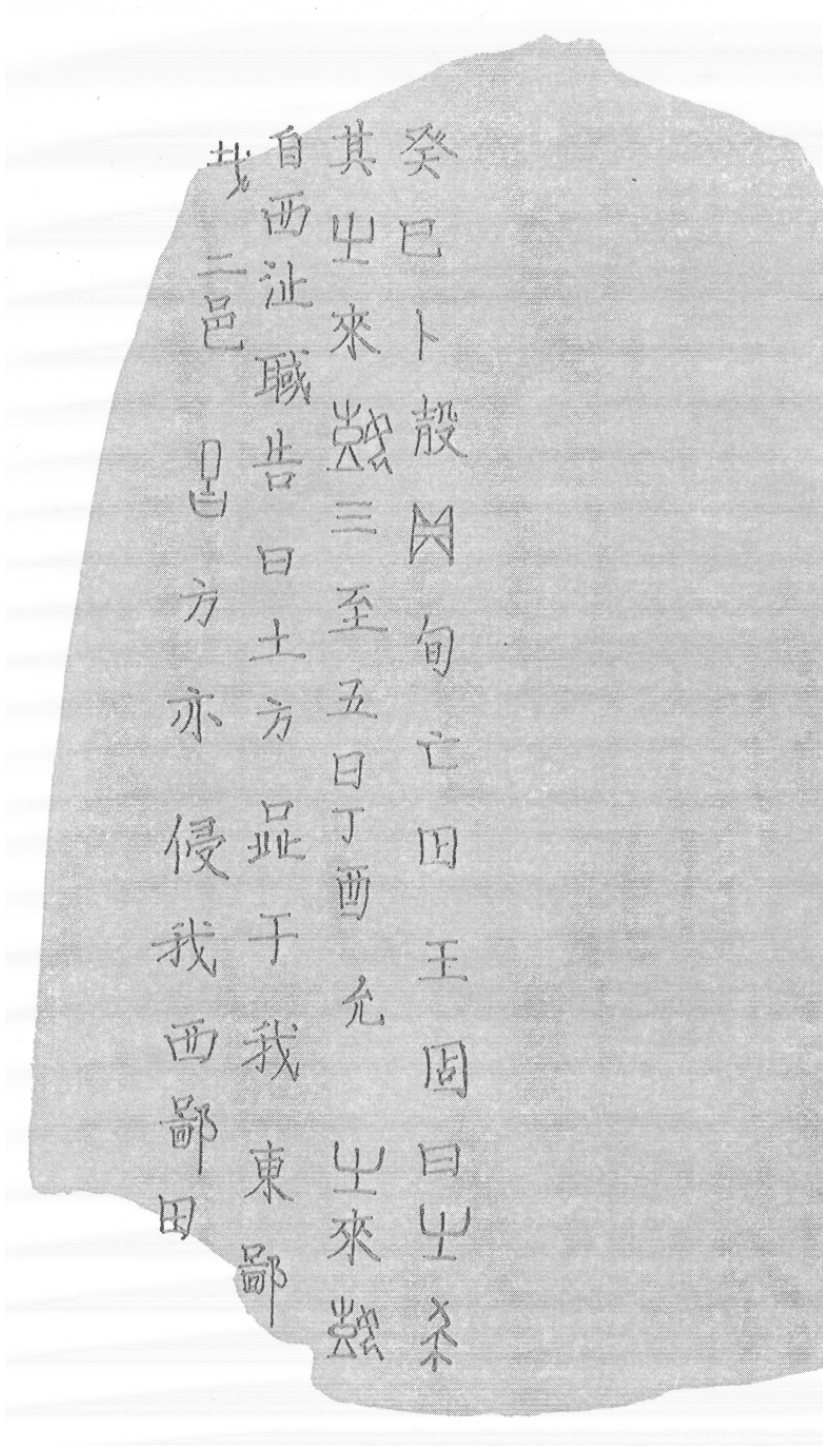 癸巳卜㱿旬亡王固曰㞢
其㞢來三至五日丁酉允㞢來
自西沚聝告曰土方于我東鄙
𢦏二邑方亦侵我西鄙田